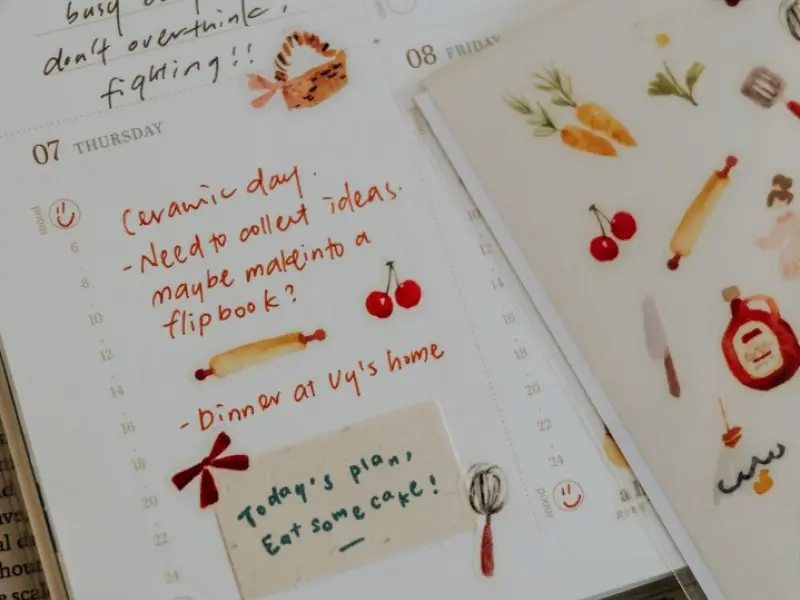 busy
don't overthink,
fighting!!
07 THURSDAY
08 FRIDAY
mood
6
8
10
12
14
16
18
20
22
24
Ceramic day.
- Need to collect ideas.
maybe make into a
flipbook?
- Dinner at Vy's home
Today's plan,
Eat some cake!
10
12
14
16
18
20
22
24
mood